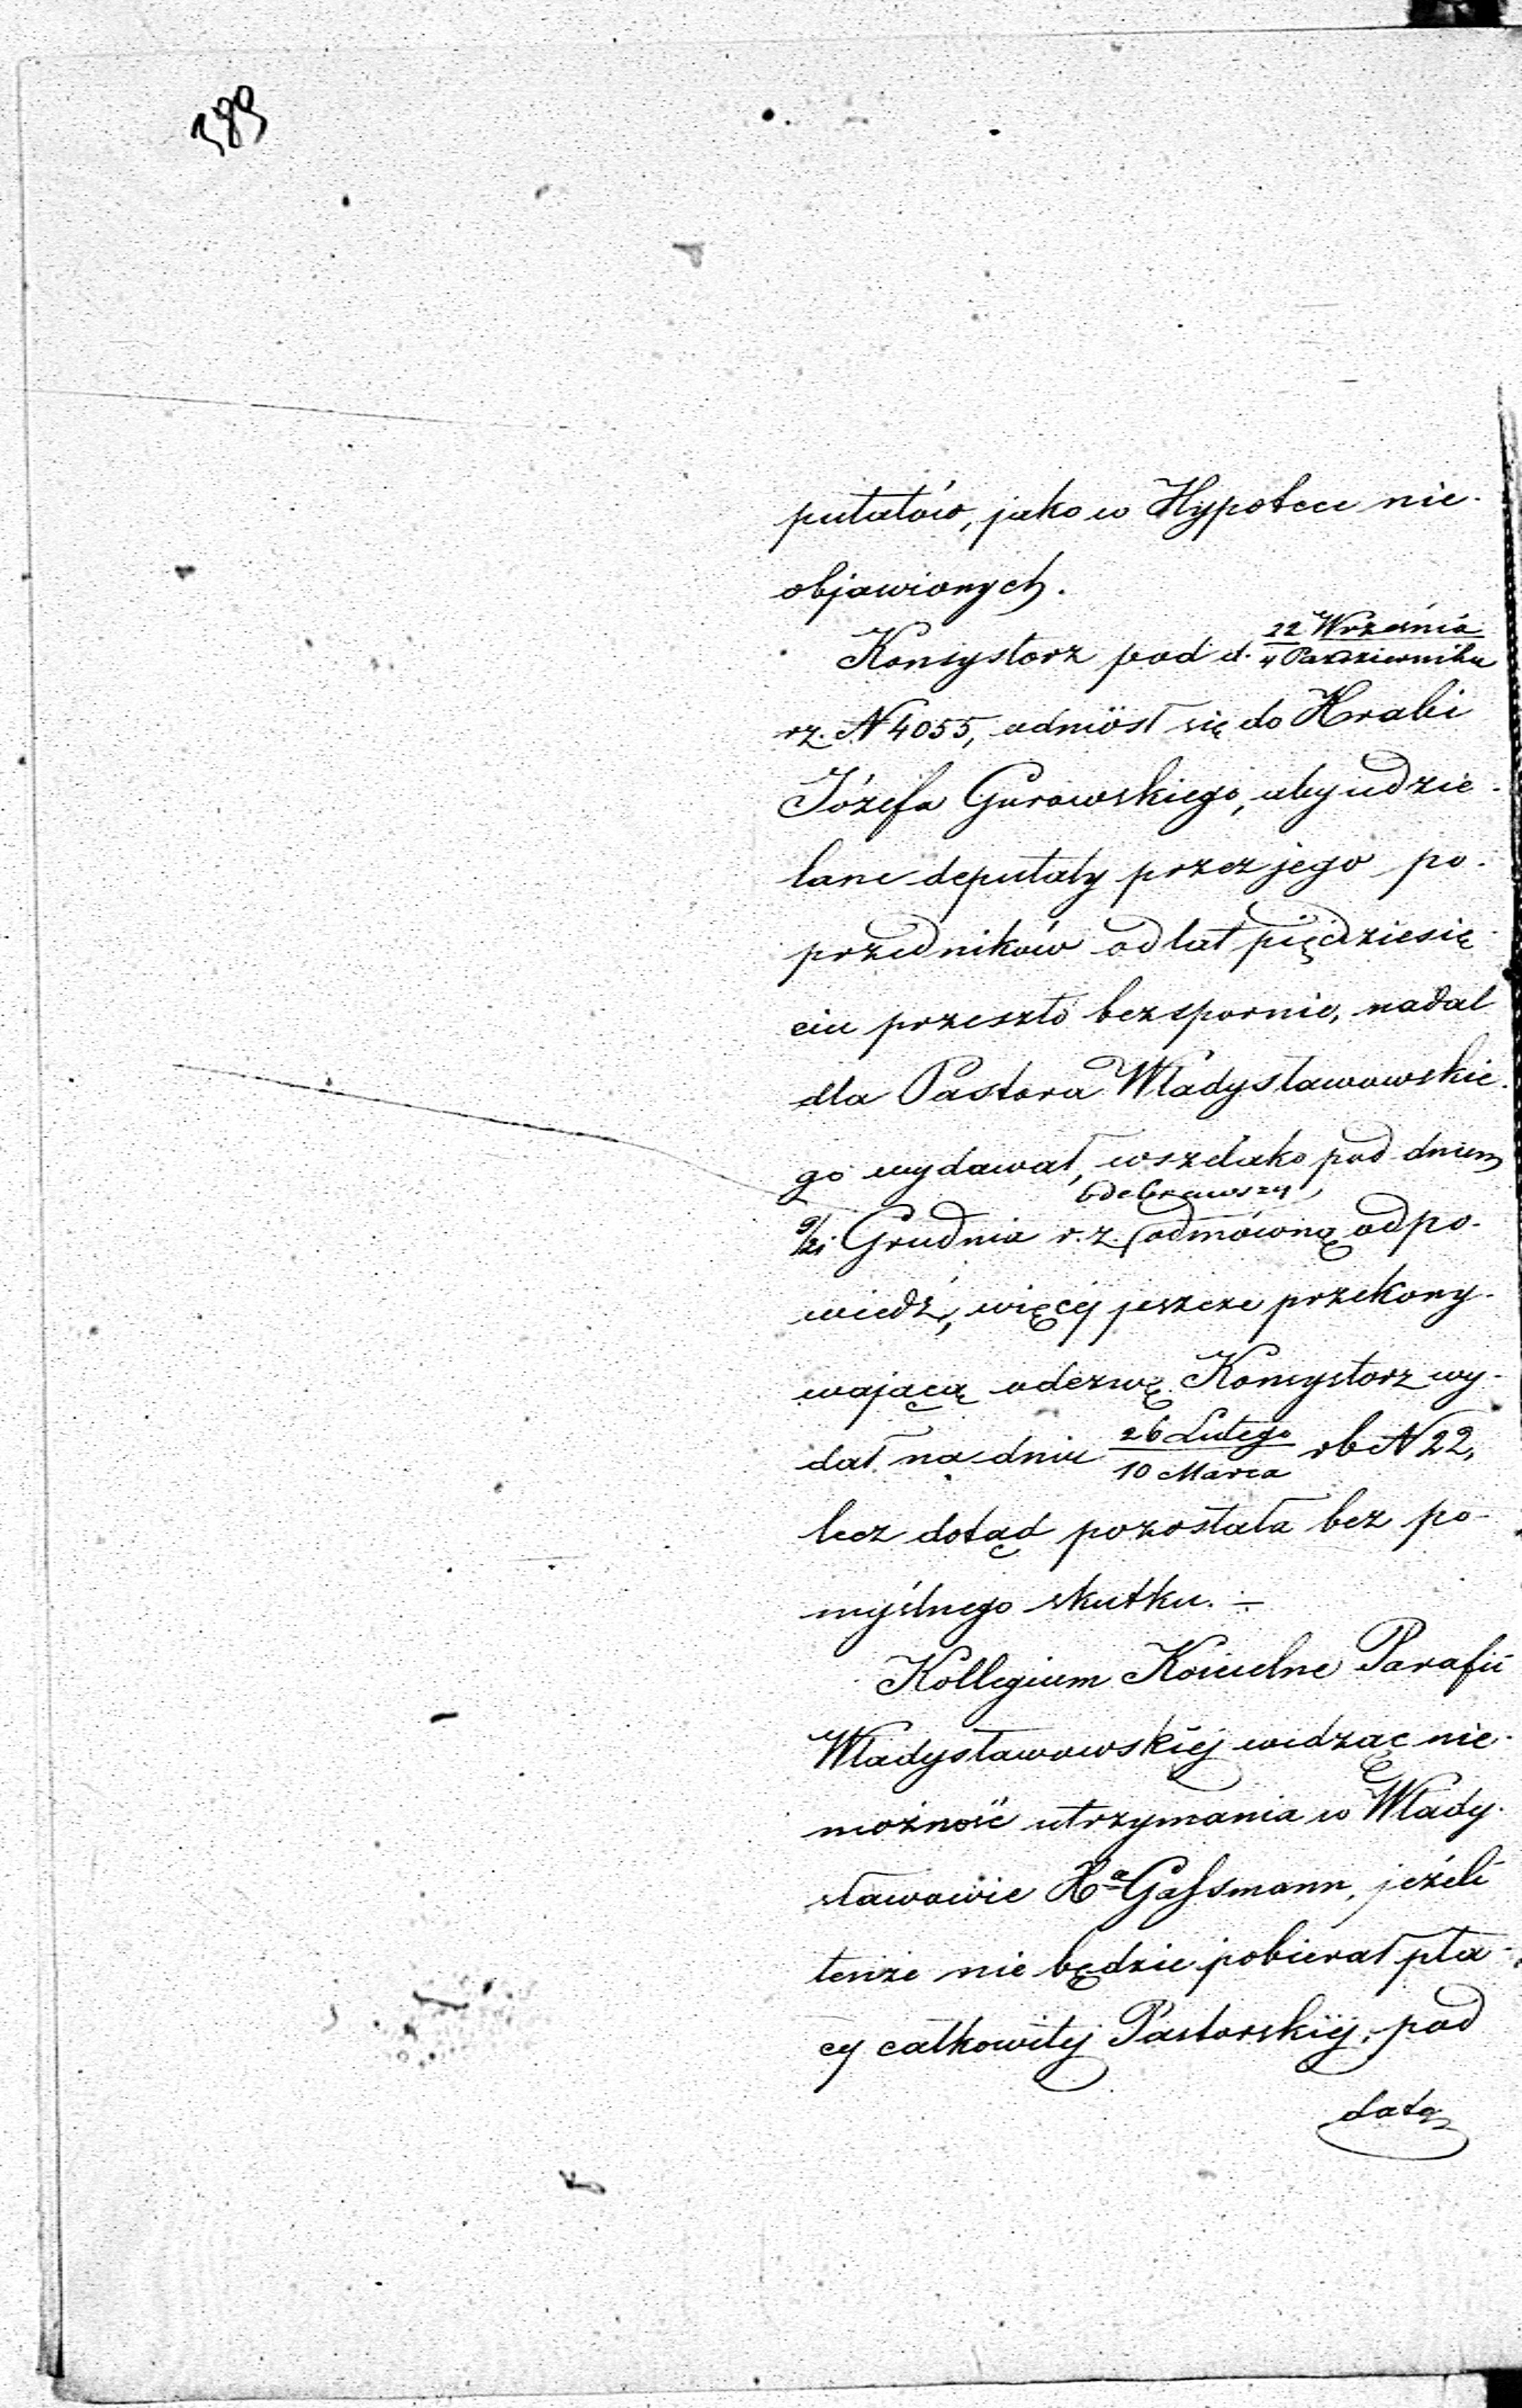 389
putatów, jako w Hypotece nie-
objawionych.
Konsystorz pod d. 22 Września / 4 Października
rz. N 4055, odniósł się do Hrabi
Józefa Gurowskiego, aby udzie-
lane deputaty przez jego po-
przedników od lat pięćdziesię-
ciu przeszło bezspornie, nadal
dla Pastora Władysławowskie-
go wydawał, wszelako pod dniem
odebrawszy
9/21 Grudnia r. z. odmówną odpo-
wiedź, więcej jeszcze przekony-
wającą odezwę Konsystorz wy-
dał na dniu 26 Lutego / 10 Marca rb N 22,
lecz dotąd pozostała bez po-
myślnego skutku. ÷
Kollegium Kościelne Parafii
Władysławowskiej widząc nie-
możność utrzymania w Włady-
sławowie Xa Gassmann, jeżeli
tenże nie będzie pobierał pła-
cy całkowitej Pastorskiej, pod
datą